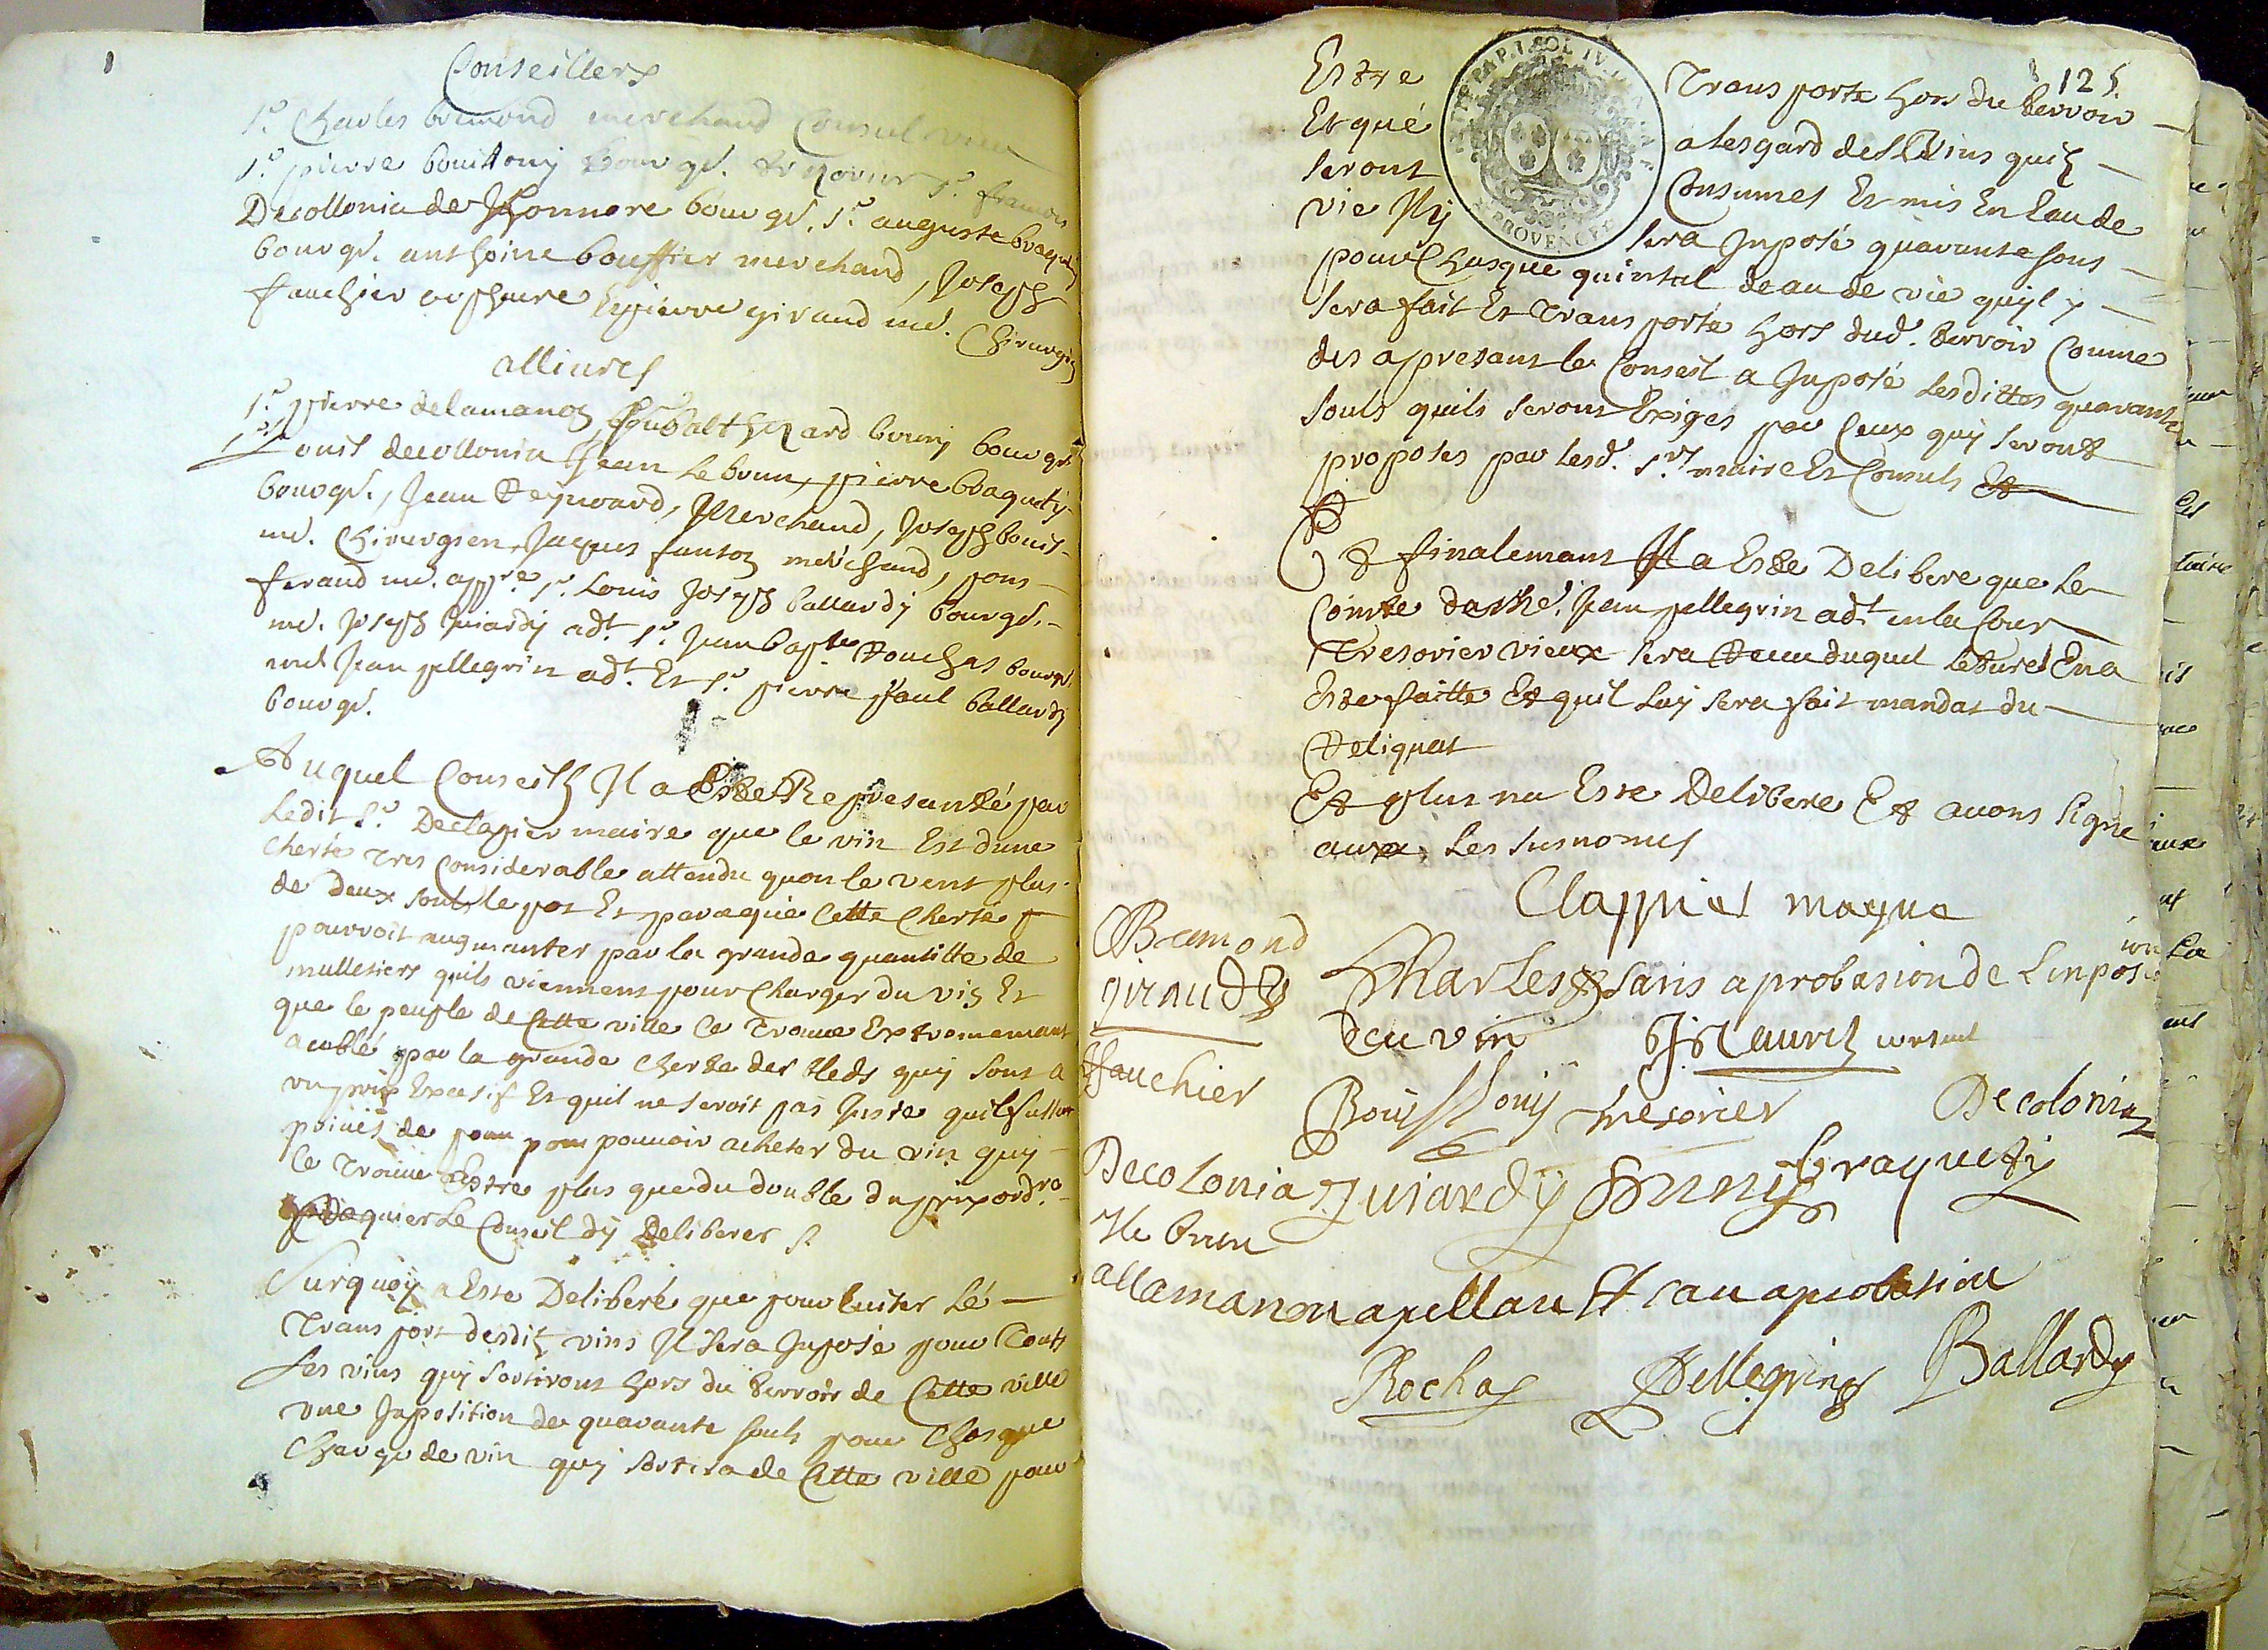 Conseillers
Sr. Charles bremond merchand Consul vieux
Sr. pierre bouittony bourgs. tresorier Sr. francois
Decollonia de Honnore bourgs. Sr. auguste braquety
bourgs. anthoine bouffier merchand, Joseph
fauchier orpheure Et pierre giraud me. Chirurgien
alliures
Sr. pierre delamanon, balthezard bouny bourgs
Louis decollonia Jean Lebrun, pierre braquety
bourgs., Jean Reynoard, Merchand, Joseph bouis
me. Chirurgien, Jaques fauton merchand, pons
feraud me. appre. Sr. Louis Joseph ballardy bourgs.
me. Joseph Juiardy adt. Sr. Jean bapte Rouchas bourgs.
me Jean pellegrin adt. Et Sr. pierre paul ballardy
bourgs.
Auquel Conseilh Il a Este Representé par
Ledit Sr. Declapier maire que le vin Est dune
cherté Tres Considerable attendu quon le vent plus
de deux souls le pot Et paraque Cette Cherté
pourroit augmanter par la grande quantitte de
mulletiers quils viennent pour Charger du vin Et
que le peuple de Cette ville Ce Trouue Extremement
acablé par la grande Cherte des bleds quy sont a
un prix Excesif Et quil ne seroit pas Juste quil fussent
priués de pain pour pouuoir acheter du vin quy
Ce Trouue Estre plus que du double du prix ordre
Requier Le Conseil dy Deliberer S.
Surquoy a Este Deliberé que pour Euiter Lé
Transport desdits vins Il sera Imposé pour Touts
Les vins quy sortiront hors du Terroir de Cette ville
vne Imposition de quarante souls pour Chasque
Charge de vin quy sortira de Cette ville pour
125
Estre Transporte hors du Terroir
Et qué a lesgard des vins quils
seront Consumes Et mis En Eau de
vie Il y sera Imposé quarante sous
pour Chasque quintal deau de vie quyl y
sera fait Et Transporté hors dud. Terroir Comme
des apresant le Conseil a Imposé Lesdittes quarante
souls quils seront Exiges par Ceux quy seront
proposes par Lesd. Srs maire Et Consuls Et
Et finalemant Il a Este Delibere que Le
Comte Jean pellegrin adt en la Cour
Tresorier vieux sera Receu duquel Lecture En a
Este faitte Et quil Luy sera fait mandat du
Reliquat
Et plus na Este Delibere Et auons signe
auec Les susnomes
Clappies mayre
Bremond
giraud
Charles sans aprobasion de Linposision
deu vin
J Reauril consul
fauchier
Bouittony tresorier
Decolonia
Decolonia
Juiardy
Bouny
braquety
Le brun
allamanon apellan Et san aprobation
Rochas
Pellegrin
Ballardy